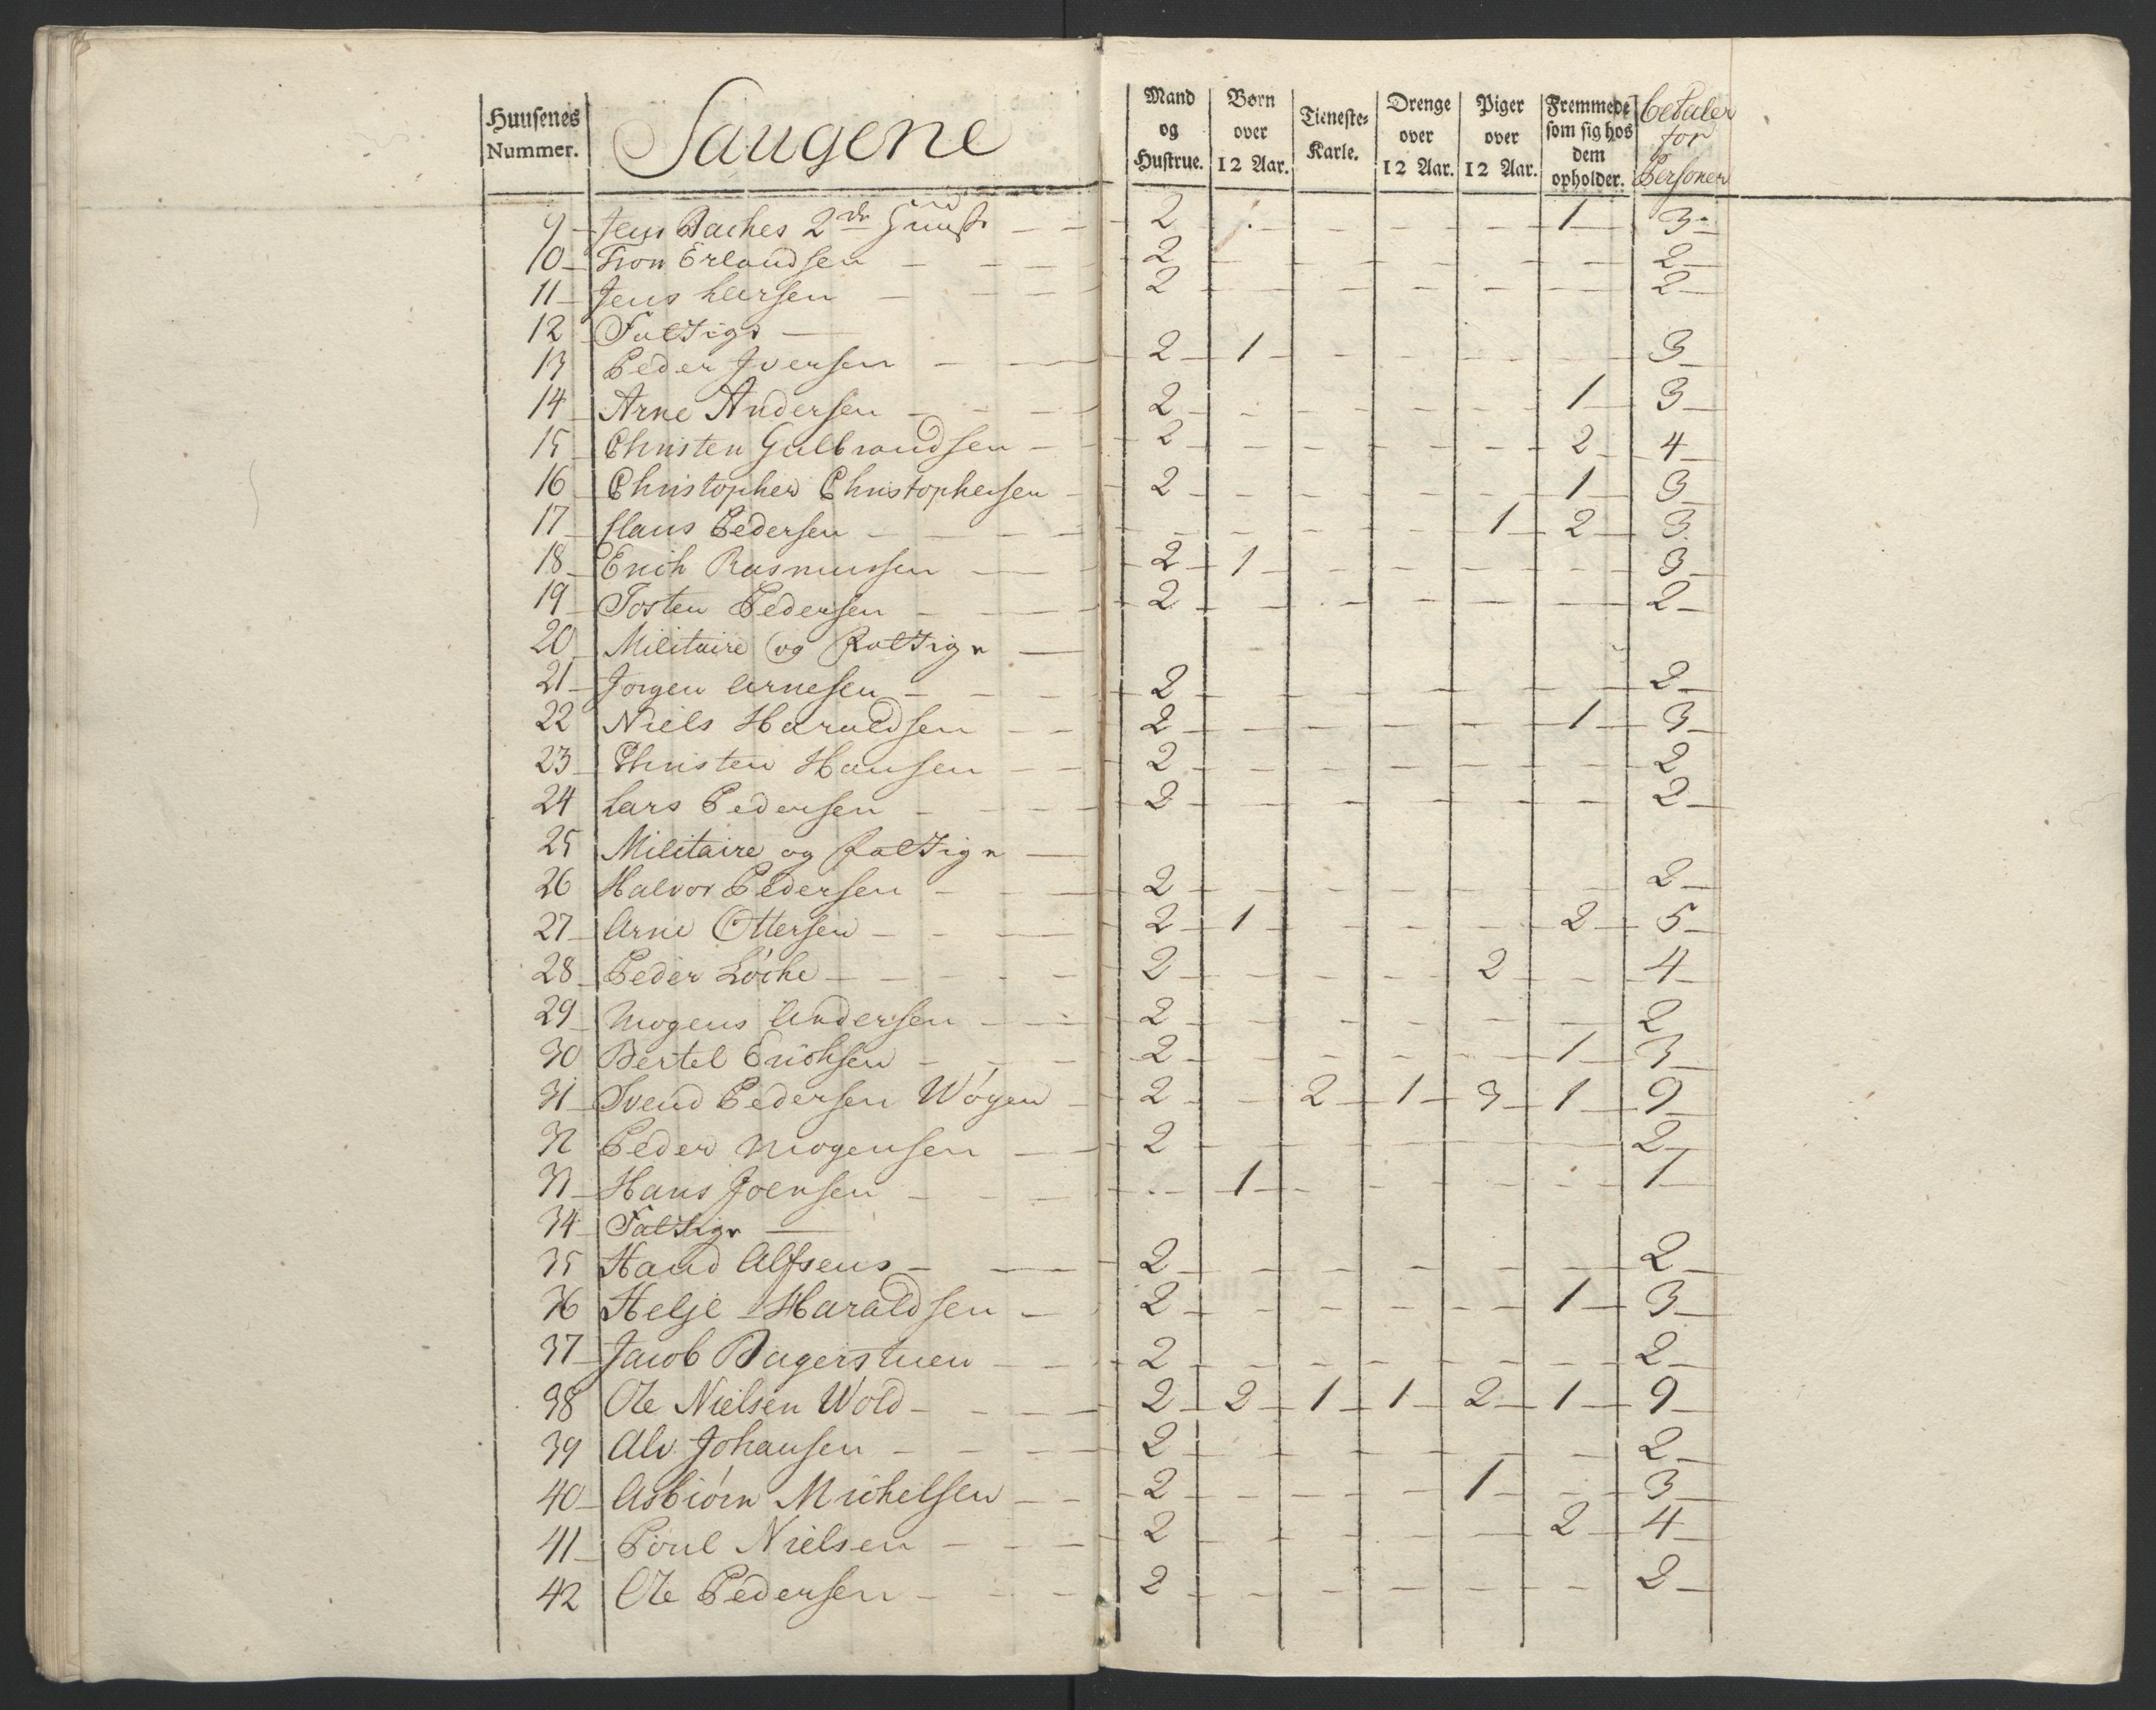 Huusenes Nummer. Saugene Mand og Hustrue. Børn over 12 Aar. Tieneste-Karle. Drenge over 12 Aar. Piger over 12 Aar. Fremmede som sig hos dem opholder. betaler for Personer
9 Jens Baches 2de 2 1 3
10 Tron Erlandsen 2 2
11 Jens Larsen 2 2
12 Fattige
13 Peder Iversen 2 1 3
14 Arne Andersen 2 1 3
15 Christen Gulbrandsen 2 2 4
16 Christopher Christophersen 2 1 3
17 Claus Pedersen 1 2 3
18 Erich Rasmussen 2 1 3
19 Tosten Pedersen 2 2
20 Militaire og Fattige
21 Jorgen Arnesen 2 2
22 Niels Haraldsen 2 1 3
23 Christen Hansen 2 2
24 Lars Pedersen 2 2
25 Militaire og fattige
26 Halvor Pedersen 2 2
27 Arne Ottersen 2 1 2 5
28 Peder Löche 2 2 4
29 Mogens Andersen 2 2
30 Bertel Erichsen 2 1 3
31 Svend Pedersen Wöyen 2 2 1 3 1 9
32 Peder Mogensen 2 2
33 Hans Joensen 1 1
34 Fattige
35 Haud Alfsens 2 2
36 Helje Haraldsen 2 1 3
37 Jacob Bagerstuen 2 2
38 Ole Nielsen Wold 2 2 1 1 2 1 9
39 Alv Johansen 2 2
40 Asbiörn Michelsen 2 1 3
41 Poul Nielsen 2 2 4
42 Ole Pedersen 2 2